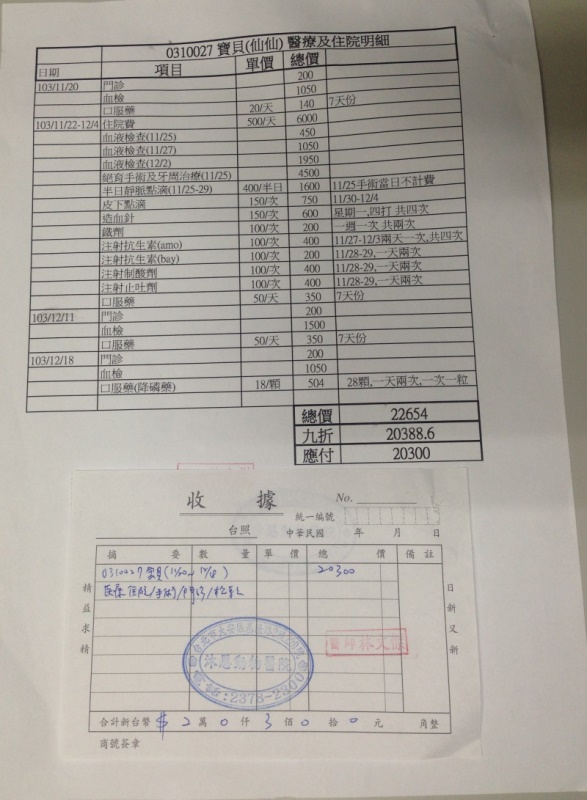 0310027 寶貝(仙仙) 醫療及住院明細
日期 項目 單價 總價
103/11/20 門診 200
血檢 1050
口服藥 20/天 140 7天份
103/11/22-12/4 住院費 500/天 6000
血液檢查(11/25) 450
血液檢查(11/27) 1050
血液檢查(12/2) 1950
絕育手術及牙周治療(11/25) 4500
半日靜脈點滴(11/25-29) 400/半日 1600 11/25手術當日不計費
皮下點滴 150/次 750 11/30-12/4
造血針 150/次 600 星期一,四打 共四次
鐵劑 100/次 200 一週一次 共兩次
注射抗生素(amo) 100/次 400 11/27-12/3兩天一次,共四次
注射抗生素(bay) 100/次 200 11/28-29,一天兩次
注射制酸劑 100/次 400 11/28-29,一天兩次
注射止吐劑 100/次 400 11/28-29,一天兩次
口服藥 50/天 350 7天份
103/12/11 門診 200
血檢 1500
口服藥 50/天 350 7天份
103/12/18 門診 200
血檢 1050
口服藥(降磷藥) 18/顆 504 28顆,一天兩次,一次一粒
總價 22654
九折 20388.6
應付 20300
收據 No.
統一編號
台照 中華民國 年 月 日
摘要 數量 單價 總價 備註
0310027 寶貝(11/20~12/18) 20300
醫療住院/手術/門診/檢驗
精益求精
日新又新
沐恩動物醫院
電話:2378-2300
合計新台幣 $ 2 萬 0 仟 3 佰 0 拾 0 元 角整
商號簽章